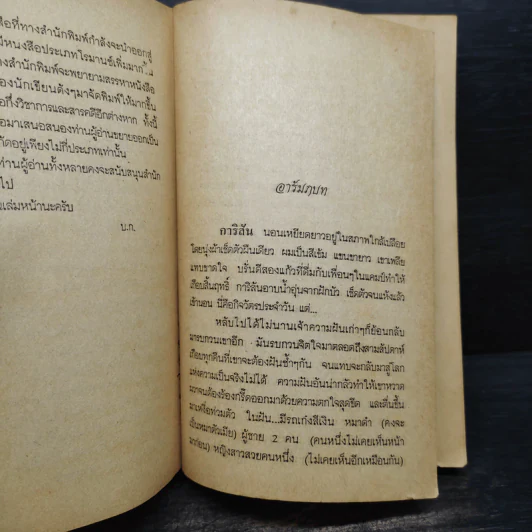 อที่ทางสำนักพิมพ์กำลังจะนำออกสู่
มีหนังสือประเภทโรมานซ์เพิ่มมากขึ้น
งสำนักพิมพ์จะพยายามสรรหาหนังสือ
องนักเขียนดังๆมาจัดพิมพ์ให้มากขึ้น
อกึ่งวิชาการและสารคดีอีกต่างหาก ทั้งนี้
อมาเสนอสนองท่านผู้อ่านขยายออกเป็น
กัดอยู่เพียงไม่กี่ประเภทเท่านั้น
ท่านผู้อ่านทั้งหลายคงจะสนับสนุนสำนัก
ไป
นเล่มหน้านะครับ
บ.ก.
อารัมภบท
การิสัน นอนเหยียดยาวอยู่ในสภาพใกล้เปลือย
โดยนุ่งผ้าเช็ดตัวผืนเดียว ผมเป็นสีเข้ม แขนขายาว เขาเพลีย
แทบขาดใจ บรั่นดีสองแก้วที่ดื่มกับเพื่อนๆในแคมป์ทำให้
เกือบสิ้นฤทธิ์ การิสันอาบน้ำอุ่นจากฝักบัว เช็ดตัวจนแห้งแล้ว
เข้านอน นี่คือกิจวัตรประจำวัน แต่...
หลับไปได้ไม่นานเจ้าความฝันเก่าๆก็ย้อนกลับ
มารบกวนเขาอีก มันรบกวนจิตใจมาตลอดถึงสามสัปดาห์
เกือบทุกคืนที่เขาจะต้องฝันซ้ำๆกัน จนแทบจะกลับมาสู่โลก
แห่งความเป็นจริงไม่ได้ ความฝันอันน่ากลัวทำให้เขาหวาด
ผวาจนต้องร้องกรี๊ดออกมาด้วยความตกใจสุดขีด และตื่นขึ้น
มาเหงื่อท่วมตัว ในฝัน...มีรถเก๋งสีเงิน หมาดำ (คงจะ
เป็นหมาตัวเมีย) ผู้ชาย 2 คน (คนหนึ่งไม่เคยเห็นหน้า
มาก่อน) หญิงสาวสวยคนหนึ่ง (ไม่เคยเห็นอีกเหมือนกัน)